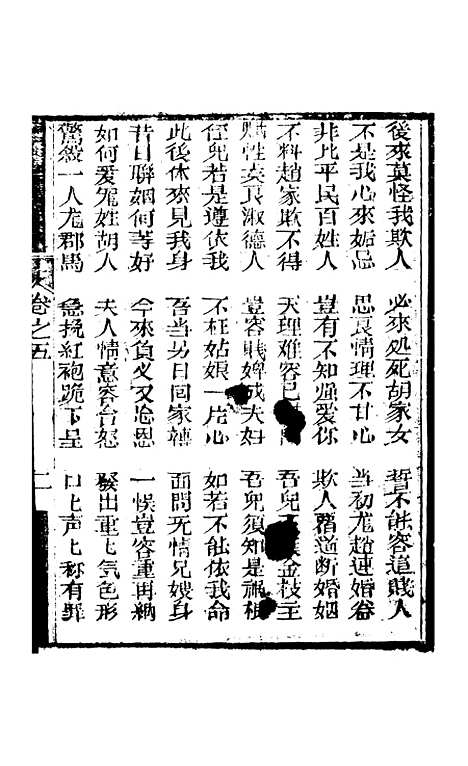 後來莫怪我欺人 必來処死胡家女 誓不能容這賤人
不是我心來妬忌 思良情理不甘心 當初尤趙連婚眷
非比平民百姓人 豈有不知強爱你 欺人醫道断婚姻
不料趙家欺不得 天理难容己 吾兒 金枝主
賦性安良淑德人 豈容賤婢成夫婦 吾兒須知是祸根
侄兒若是遵依我 不枉姑娘一片心 如若不能依我命
此後休來見我身 吾当另日回家轉 面問无情兄嫂身
昔日聨姻何等好 今來負义又忘恩 一悞豈容重再納
如何爱寵姓胡人 夫人情意容台怒 聚出重上気色形
驚殺一人尤郡馬 急挽紅袍跪下呈 口上声上称有罪
卷之五